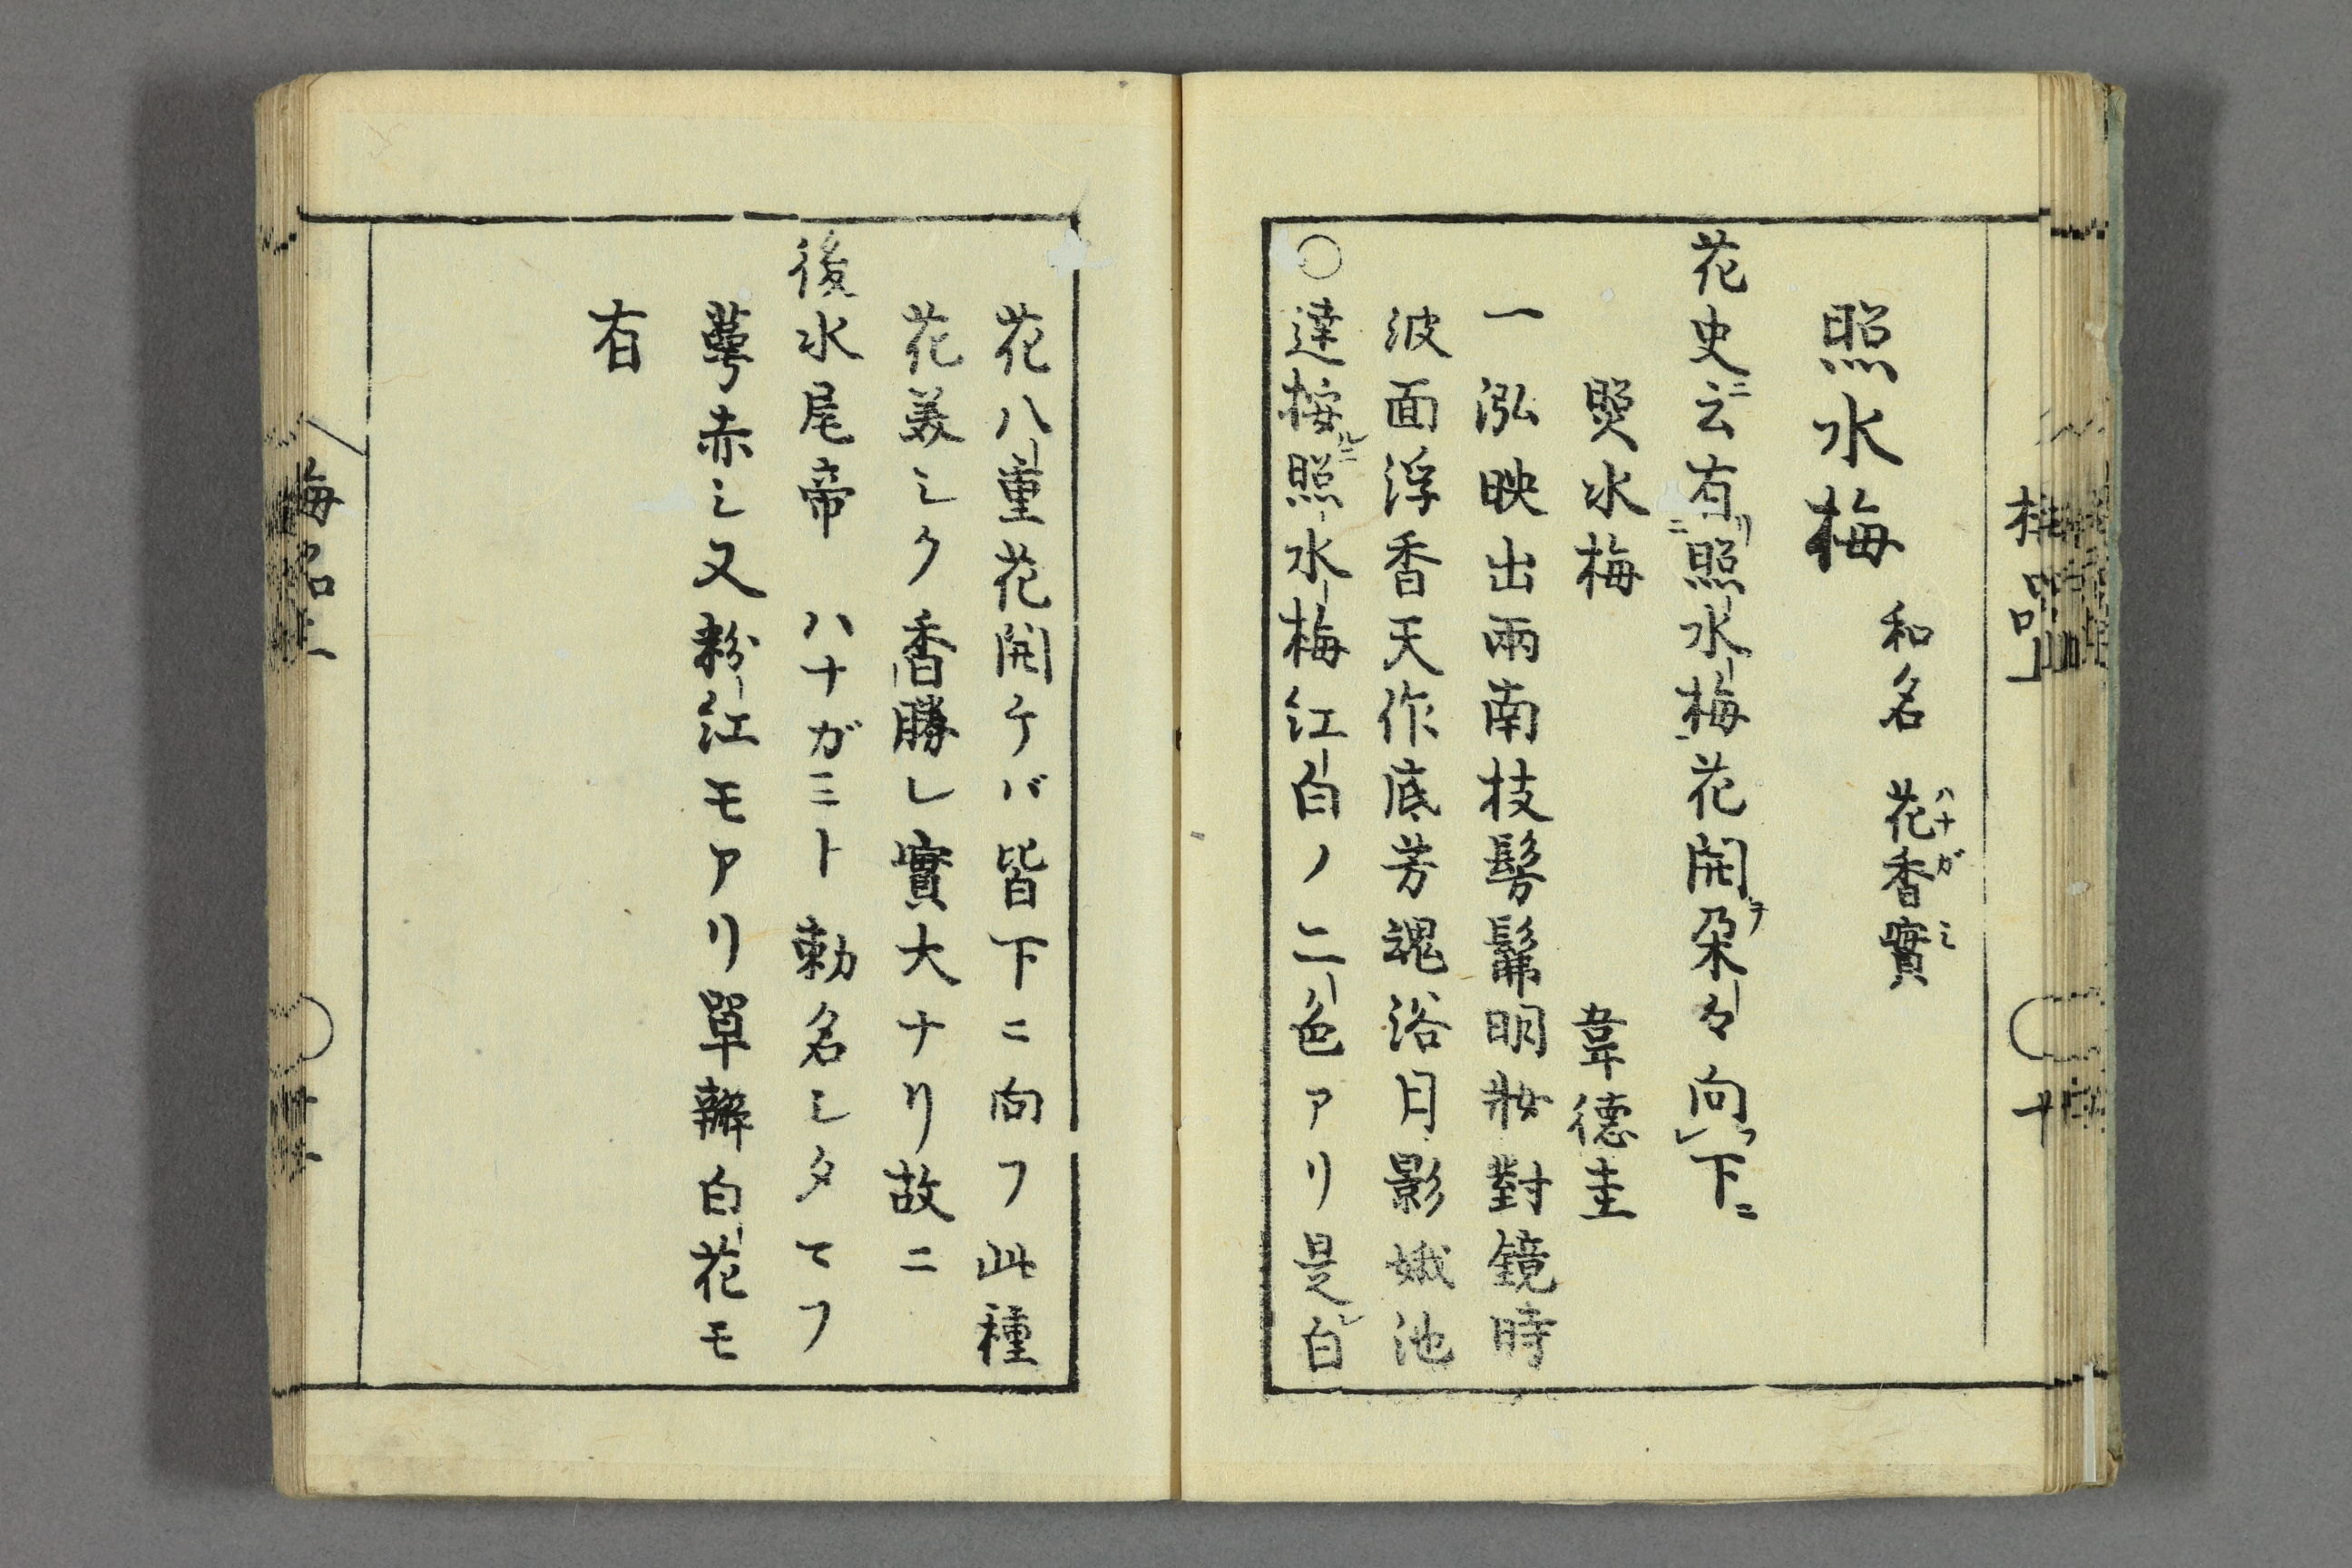 梅品上
十
照水梅
和名 花香實
ハナガミ
花史ニ云有リ二照水梅一花開テ朶々向フレ下ニ
照水梅 韋德圭
一泓映出兩南枝髣髴明妝對鏡時
波面浮香天作底芳魂浴月影娥池
○達按ルニ照水梅江白ノ二色アリ是レ白
花八重花開ケバ皆下ニ向フ此種
花美シク香勝レ實大ナリ故ニ
後水尾帝 ハナガミト 勅名シタマフ
萼赤シ又粉江モアリ單瓣白花モ
有
梅品上